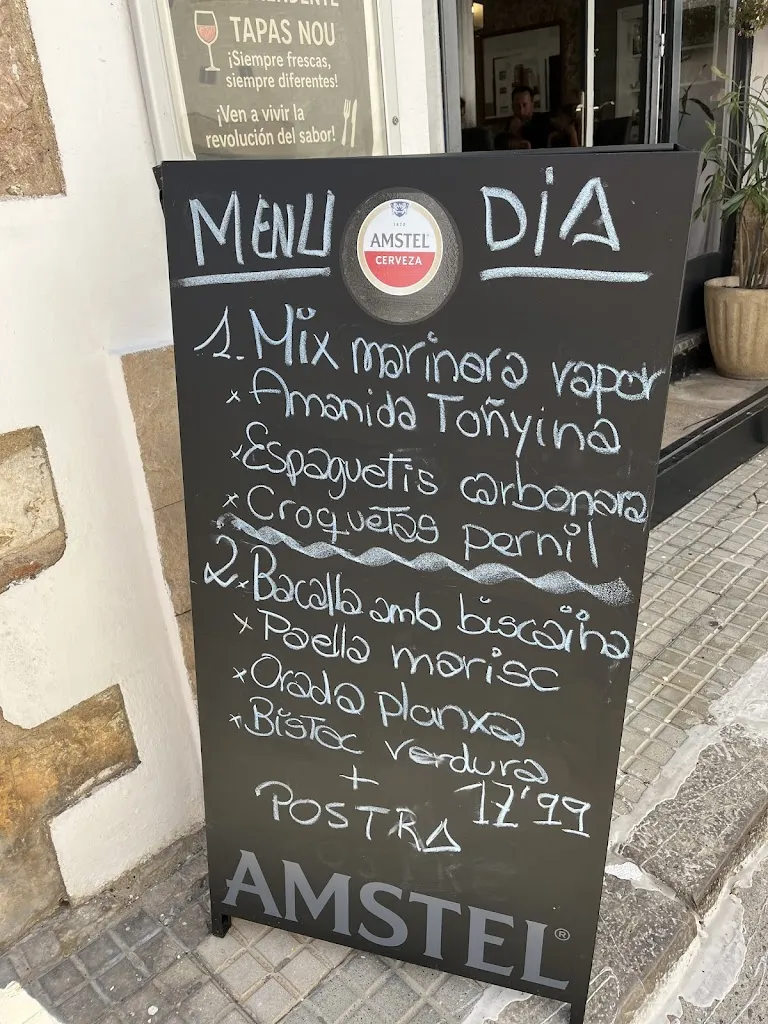 TAPAS NOU
¡Siempre frescas,
siempre diferentes!
¡Ven a vivir la
revolución del sabor!
MENU DIA
AMSTEL
CERVEZA
1. Mix marinera vapor
x Amanida Toñyina
x Espaguetis carbonara
x Croquetas pernil
2. Bacalla amb biscaïna
x Paella marisc
x Orada planxa
x Bistec verdura
+
POSTRA 17'99
AMSTEL®